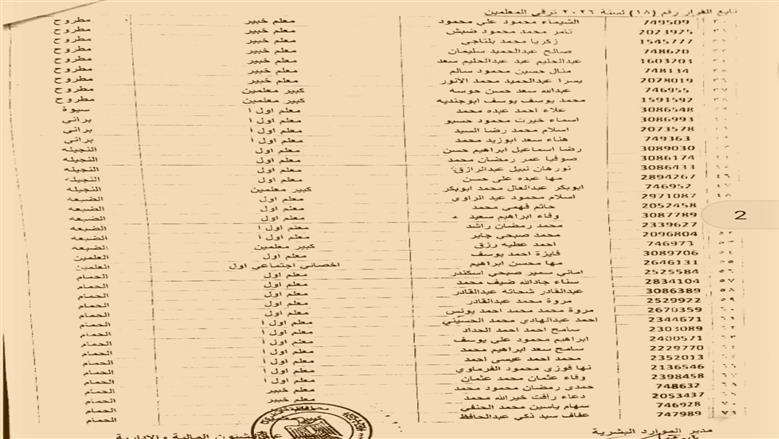 تابع القرار رقم (١٨) لسنة ٢٠٢٦ ترقى المعلمين
749509 الشيماء محمود على محمود معلم خبير مطروح
2023925 تامر محمد محمود ضيش معلم خبير مطروح
1545777 زكريا محمد بلتاجى معلم خبير مطروح
748620 صالح عبدالحميد سليمان معلم خبير مطروح
1603203 عبدالحليم عيد عبدالحليم سعد معلم خبير مطروح
748134 منال حسين محمود سالم معلم خبير مطروح
2028019 يسرا عبدالحميد محمد الانور معلم خبير مطروح
746955 عبدالله سعد حسن حوسه كبير معلمين مطروح
1591592 محمد يوسف يوسف ابوجنديه كبير معلمين مطروح
3086548 علاء احمد عبده محمد معلم اول أ سيوة
3086993 اسماء خيرت محمود حسبو معلم اول أ براني
2073578 اسلام محمد رضا السيد معلم اول أ براني
749363 هناء سعد ابوزيد محمد معلم اول أ براني
3089030 رضا اسماعيل ابراهيم حسن معلم اول النجيله
3086174 صوفيا عمر رمضان محمد معلم اول النجيله
3086433 نورهان نبيل عبدالرازق معلم اول أ النجيله
2894267 مها عبده على حسن معلم اول النجيله
746952 ابوبكر عبدالعال محمد ابوبكر كبير معلمين النجيله
2971087 اسلام محمود عيد الراوى معلم اول الضبعه
2052458 حاتم فهمى محمد معلم اول الضبعه
3087789 وفاء ابراهيم سعيد معلم اول الضبعه
2339627 محمد رمضان راشد معلم اول أ الضبعه
2096804 محمد صبحى جابر معلم اول أ الضبعه
746973 احمد عطيه رزق كبير معلمين الضبعه
3089706 فايزة احمد يوسف معلم اول العلمين
2646131 مها محسن ابراهيم اخصائي اجتماعي اول العلمين
2525584 امانى سمير صبحى اسكندر معلم اول الحمام
2834104 سناء جادالله ضيف محمد معلم اول الحمام
3086389 عبدالقادر شحاته عبدالقادر معلم اول الحمام
2529922 مروة محمد عبدالقادر معلم اول الحمام
2670359 مروة محمد محمد احمد يونس معلم اول الحمام
2344671 احمد عبدالهادي محمد الحسيني معلم اول أ الحمام
2303089 سامح احمد احمد الحداد معلم اول أ الحمام
2400571 ابراهيم محمود على يوسف معلم اول أ الحمام
2229770 سامح سعد ابراهيم محمد معلم اول أ الحمام
2352013 محمد احمد عيسى احمد معلم اول أ الحمام
2136546 نها فوزي محمود الفرماوى معلم اول أ الحمام
2398458 وفاء عثمان محمد عثمان معلم اول أ الحمام
748632 حمدى رمضان محمود محمد معلم خبير الحمام
2053437 دعاء رافت خيرالله محمد معلم خبير الحمام
746928 سهام ياسين محمد الحنفى الحمام
747989 عفاف سيد ذكى عبدالحافظ الحمام
مدير الموارد البشرية
2